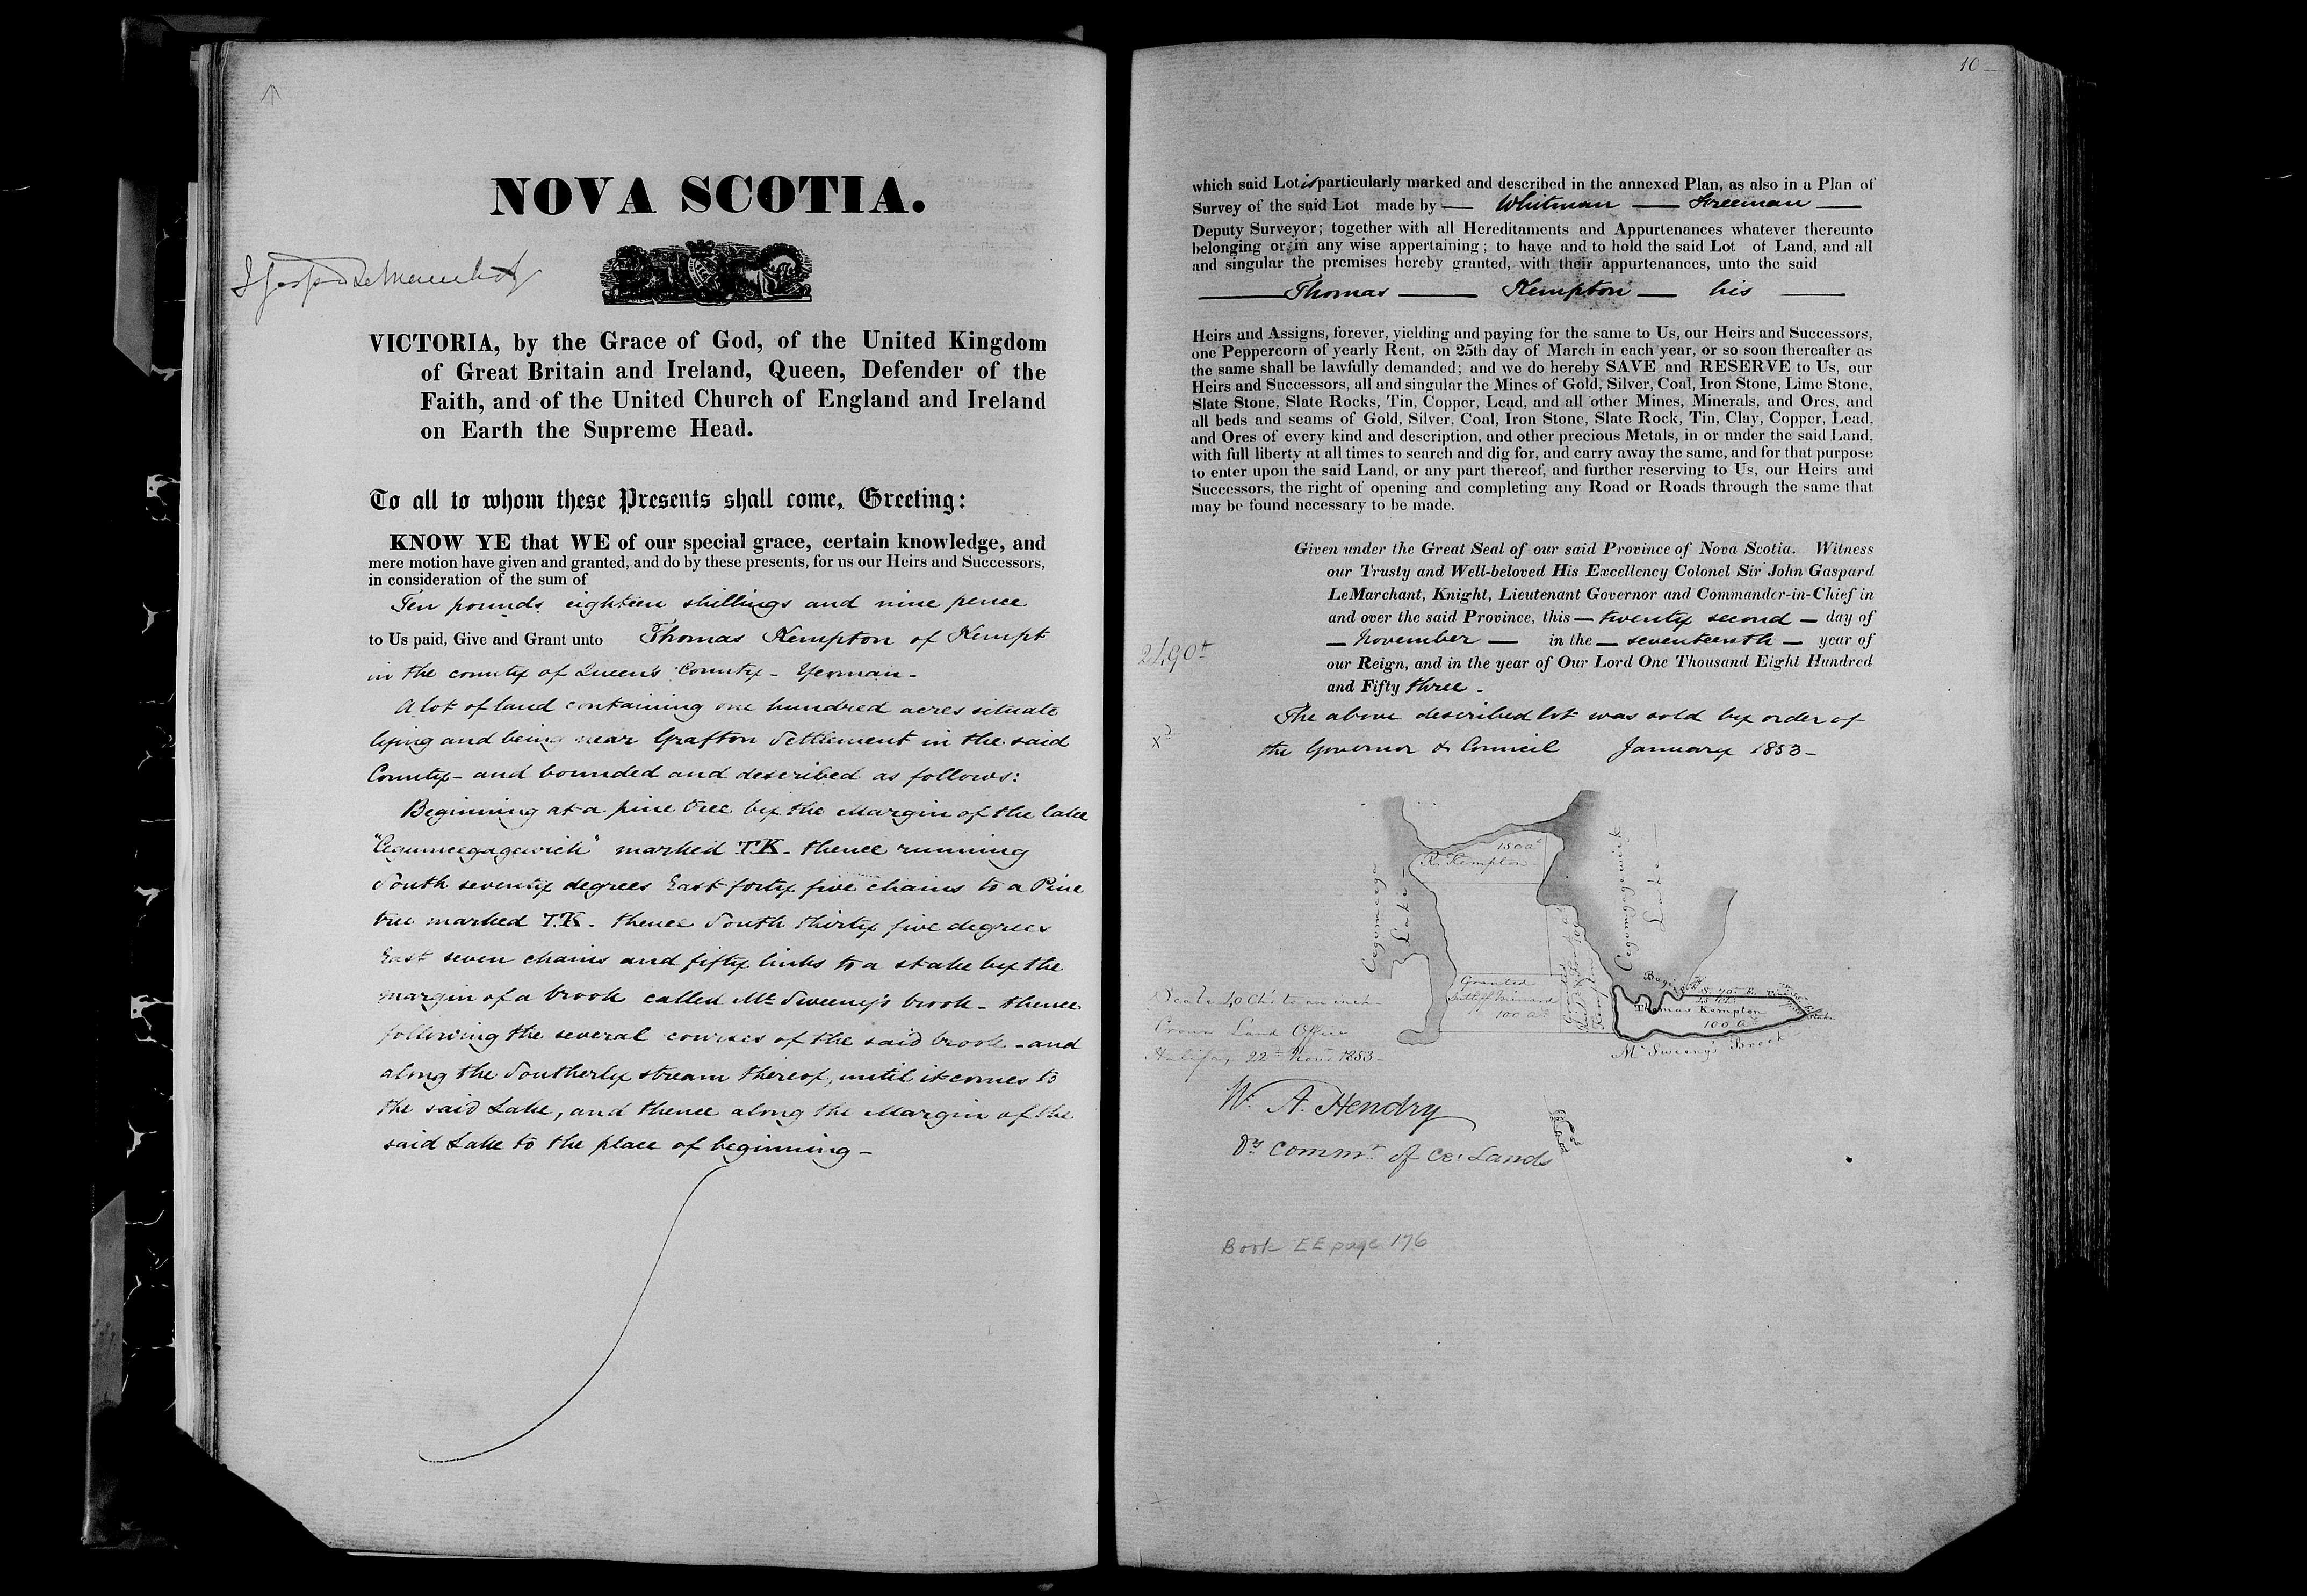 NOVA SCOTIA.
VICTORIA, by the Grace of God, of the United Kingdom
of Great Britain and Ireland, Queen, Defender of the
Faith, and of the United Church of England and Ireland
on Earth the Supreme Head.
To all to whom these Presents shall come, Greeting:
KNOW YE that WE of our special grace, certain knowledge, and
mere motion have given and granted, and do by these presents, for us our Heirs and Successors,
in consideration of the sum of
Ten pounds eighteen shillings and nine pence
to Us paid, Give and Grant unto Thomas Kempton of Kempt
in the county of Queen's County - Yeoman -
A lot of land containing one hundred acres situate
lying and being near Grafton Settlement in the said
County - and bounded and described as follows:
Beginning at a pine tree by the Margin of the lake
marked T.K. thence running
South seventy degrees East forty five chains to a Pine
tree marked T.K. thence South thirty five degrees
East seven chains and fifty links to a stake by the
margin of a brook called Mc Sweeny's brook - thence
following the several courses of the said brook - and
along the Southerly stream thereof, until it comes to
the said Lake, and thence along the Margin of the
said Lake to the place of beginning -
10
which said Lot is particularly marked and described in the annexed Plan, as also in a Plan of
Survey of the said Lot made by — Whitman — Freeman —
Deputy Surveyor; together with all Hereditaments and Appurtenances whatever thereunto
belonging or in any wise appertaining; to have and to hold the said Lot of Land, and all
and singular the premises hereby granted, with their appurtenances, unto the said
— Thomas — Kempton — his —
Heirs and Assigns, forever, yielding and paying for the same to Us, our Heirs and Successors,
one Peppercorn of yearly Rent, on 25th day of March in each year, or so soon thereafter as
the same shall be lawfully demanded; and we do hereby SAVE and RESERVE to Us, our
Heirs and Successors, all and singular the Mines of Gold, Silver, Coal, Iron Stone, Lime Stone,
Slate Stone, Slate Rocks, Tin, Copper, Lead, and all other Mines, Minerals, and Ores, and
all beds and seams of Gold, Silver, Coal, Iron Stone, Slate Rock, Tin, Clay, Copper, Lead,
and Ores of every kind and description, and other precious Metals, in or under the said Land,
with full liberty at all times to search and dig for, and carry away the same, and for that purpose
to enter upon the said Land, or any part thereof, and further reserving to Us, our Heirs and
Successors, the right of opening and completing any Road or Roads through the same that
may be found necessary to be made.
Given under the Great Seal of our said Province of Nova Scotia. Witness
our Trusty and Well-beloved His Excellency Colonel Sir John Gaspard
LeMarchant, Knight, Lieutenant Governor and Commander-in-Chief in
and over the said Province, this — twenty second — day of
— November — in the — seventeenth — year of
our Reign, and in the year of Our Lord One Thousand Eight Hundred
and Fifty three -
The above described lot was sold by order of
the Governor & Council January 1853 -
R. Kempton
150 a
Lake
Lake
Granted
Minnard
100 As
S. 70° E.
45 Chs
Thomas Kempton
100 As
Mc Sweeny's Brook
Scale 40 Chs to an inch
Crown Land Office
Halifax 22nd Novr 1853 -
W. A. Hendry
Dy Commr of Cr. Lands
Book EE page 176